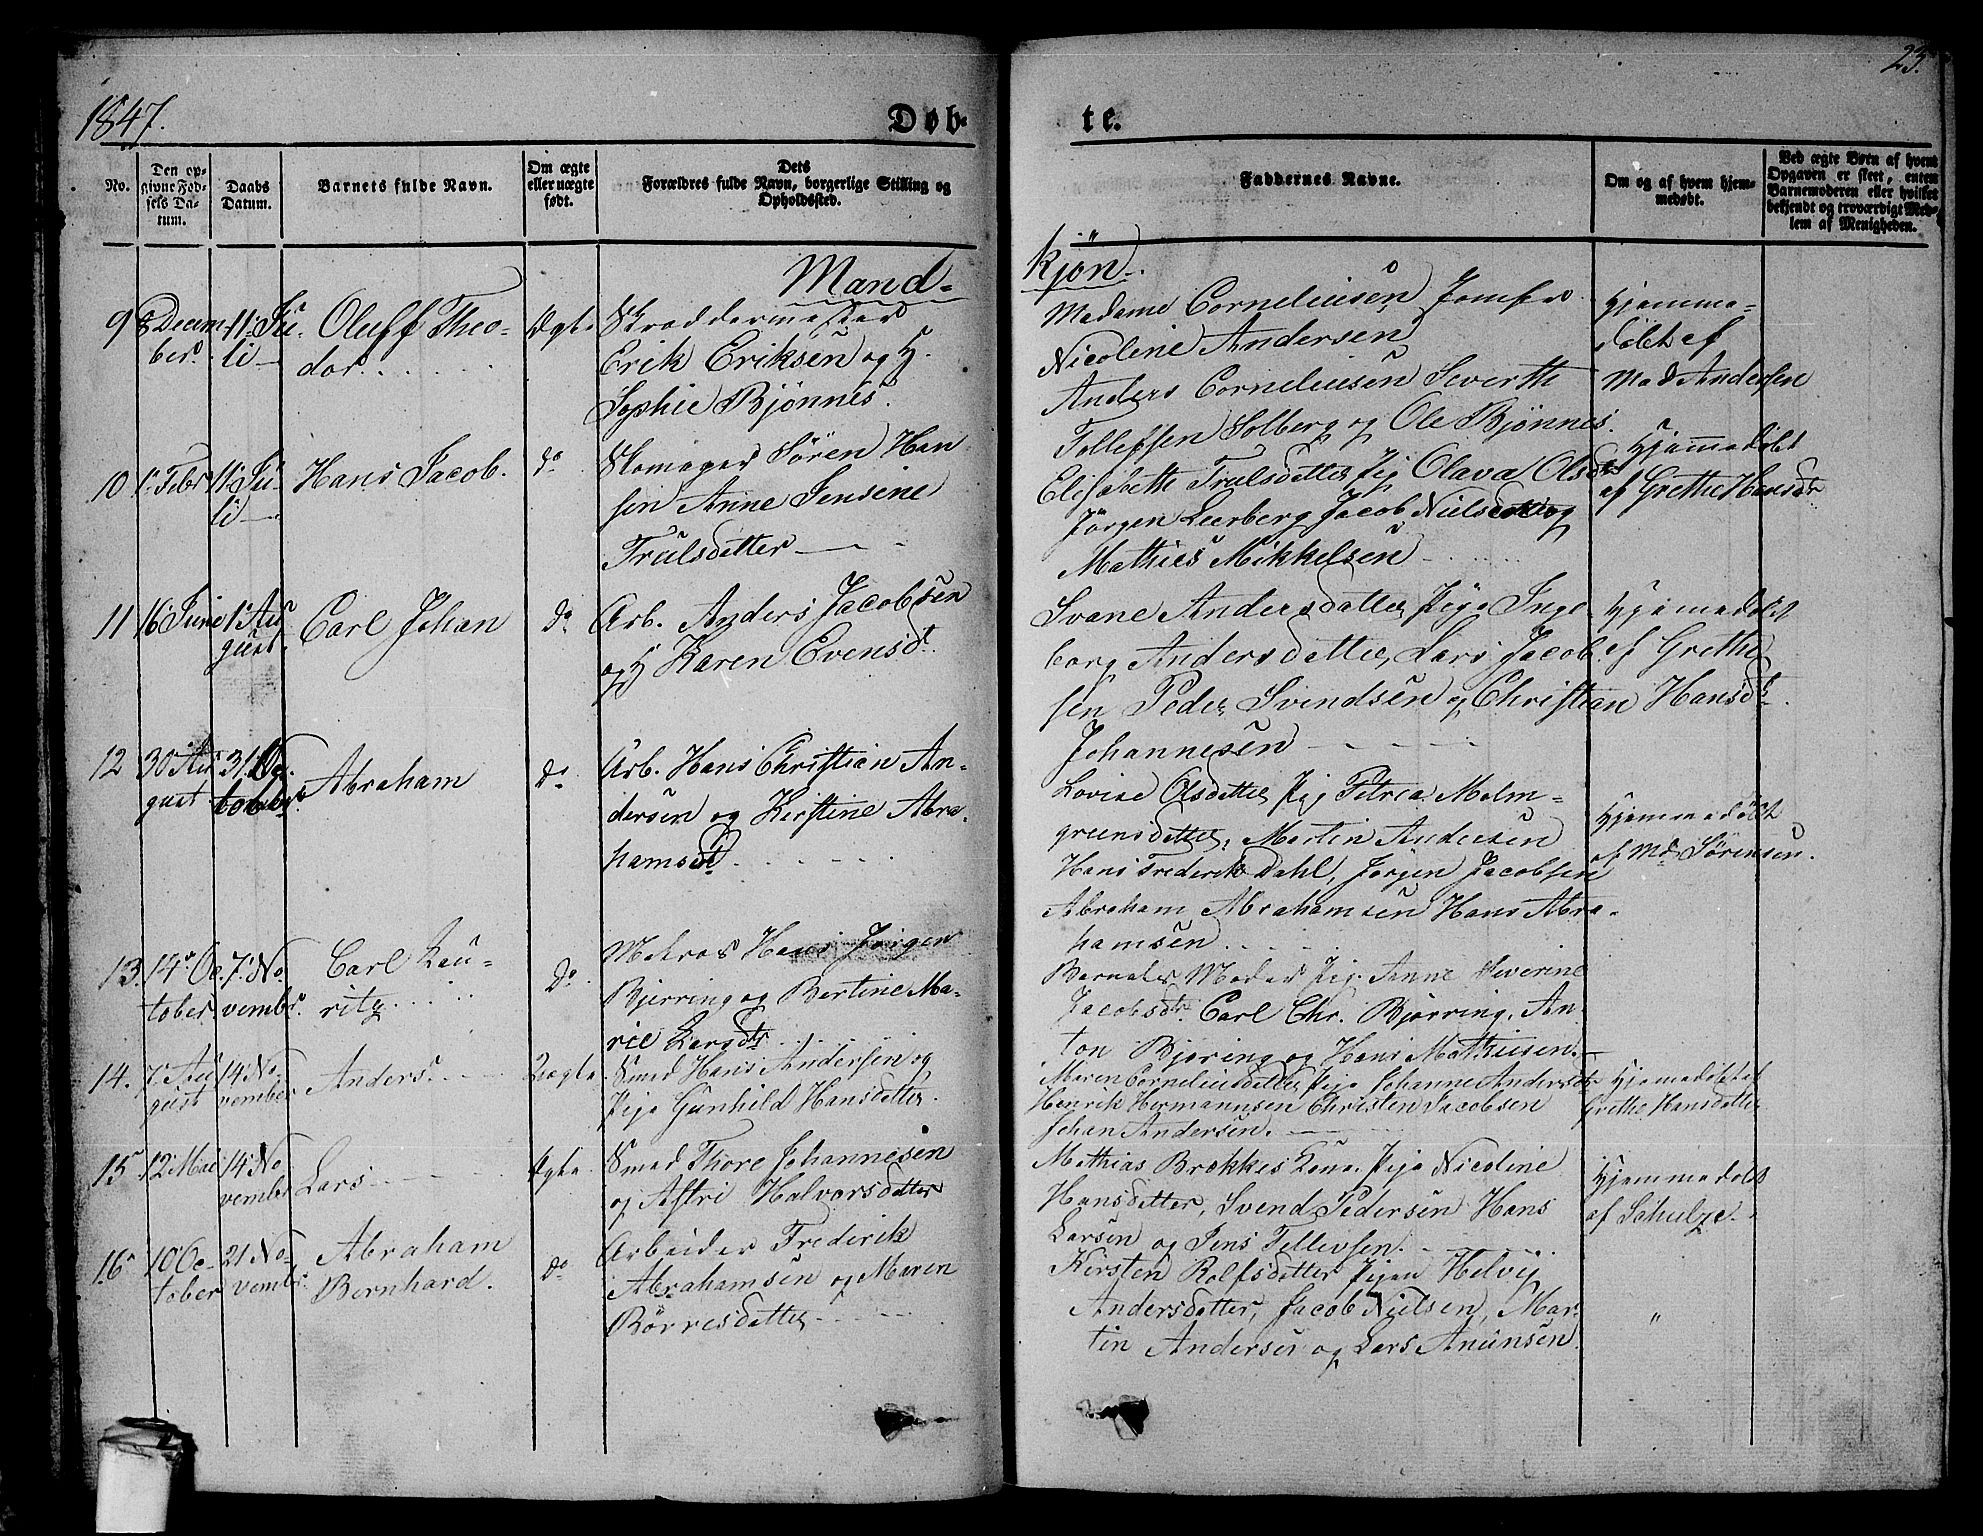 1847.
23.
Døb-
te.
No.
Den op-
givne Fød-
sels Da-
tum.
Daabs
Datum.
Barnets fulde Navn.
Om ægte
eller uægte
født.
Dets
Forældres fulde Navn, borgerlige Stilling og
Opholdssted.
Faddernes Navne.
Om og af hvem hjem-
medøbt.
Ved ægte Børn af hvem
Opgaven er skeet, enten
Barnemoderen eller hvilket
bekjendt og troværdigt Med-
lem af Menigheden.
Mand-
kjøn.
9
8 Decem-
ber.
11 Ju-
li
Oluff Theo-
dor
Ægte
Skræddermester
Erik Eriksen og H.
Sophie Bjönnes.
Madame Corneliusen, Jomfru
Nicoline Andersen
Anders Corneliusen Severth
Tollefsen Solberg og Ole Bjönnes.
Hjemme-
döbt af
Mad Andersen
10
1 Febr
11 Ju-
li
Hans Jacob.
do
Skomager Sören Han-
sen Anne Jensine
Trulsdetter
Elisabeth Trulsdetter Pige Olava Olsdtr
Jörgen Leerberg Jacob Nielsen og
Mathies Mikkelsen
Hjemmedöbt
af Grethe Hansdtr
11
16 Juni
1 Au
gust.
Carl Johan
do
Arb. Anders Jacobsen
og H Karen Evensdt.
Svane Andersdatter Pige Inge
borg Andersdatter, Lars Jacob-
sen Peder Svendsen og Christian
Johannesen
Hjemmedöbt
af Grethe
Hansdtr.
12
30 Au
gust
31 Oc
tober.
Abraham
do
Arb. Hans Christian An-
dersen og Kirstine Abra-
hamsdt.
Lovise Olsdetter Pige Petrea Malm-
greensdetter, Martin Andersen
Hans Frederik Dahl, Jörgen Jacobsen
Abraham Abrahamsen Hans Abra-
hamsen
Hjemmedöbt
af Md Sörensen.
13.
14 Oc-
tober.
7 No
vembr.
Carl Lau-
ritz
do.
Matros Hans Jörgen
Bjerring og Bertine Ma-
rie Larsdtr
Barnets Moder Pige Anne Severine
Jacobsdtr Carl Chr. Bjørring, An-
ton Bjering og Hans Mathiesen.
14.
7 Au
gust
14 No
vember
Anders.
Uægte.
Smed Hans Andersen og
Pige Gunhild Hansdetter.
Maren Corneliusdetter Pige Johanne Andersdtr
Henrik Hermannsen Christen Jacobsen
Johan Andersen.
Hjemmedöbt af
Grethe Hansdetter
15
12 Mai
14 No
vember
Lars
Ægte.
Smed Thore Johannesen
og Astri Halvorsdetter
Mathias Brækkes Kone. Pige Nicoline
Hansdetter, Svend Pedersen Hans
Larsen og Jens Tellevsen.
Hjemmedöbt
af Schulze.
16
10 Oc-
tober
21 No-
vembr.
Abraham
Bernhard.
do
Arbeider Frederik
Abrahamsen og Maren
Börresdetter
Kirsten Rolfsdetter Pigen Helvig
Andersdetter, Jacob Nielsen, Mar-
tin Andersen og Lars Anunsen.
"